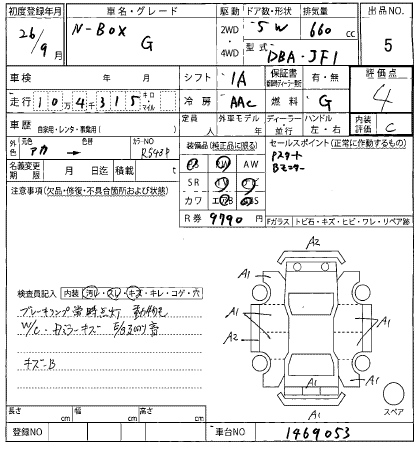 初度登録年月 車名・グレード 駆動 ドア数・形状 排気量 出品NO.
26/9月 N-BOX G 2WD・4WD 5W 660cc 5
型式 DBA-JF1
車検 年 月 シフト IA 保証書 有・無 評価点
走行 104315 キロ・マイル 冷房 AAC 燃料 G 4
車歴 自家用・レンタ・事業用( ) 定員 人 外車モデル 年 ディーラー・並行 ハンドル 左・右 内装評価 C
外色 元色 アカ 色替 カラーNO R543P
装備品(純正品に限る) セールスポイント(正常に作動するもの)
Pスタート
名義変更期限 月 日迄 積載 t
AW
SR
カワ
注意事項(欠品・修復・不具合箇所および状態)
R券 9790 円
Fガラス トビ石・キズ・ヒビ・ワレ・リペア跡
検査員記入 内装(汚レ・スレ・キズ・キレ・コゲ・穴
キズ-B
A2
A1
A1
A1
A1
A2
A1
A1
A1
A1
A1
スペア
長さ cm 幅 cm 高さ cm
登録NO 車台NO 1469053